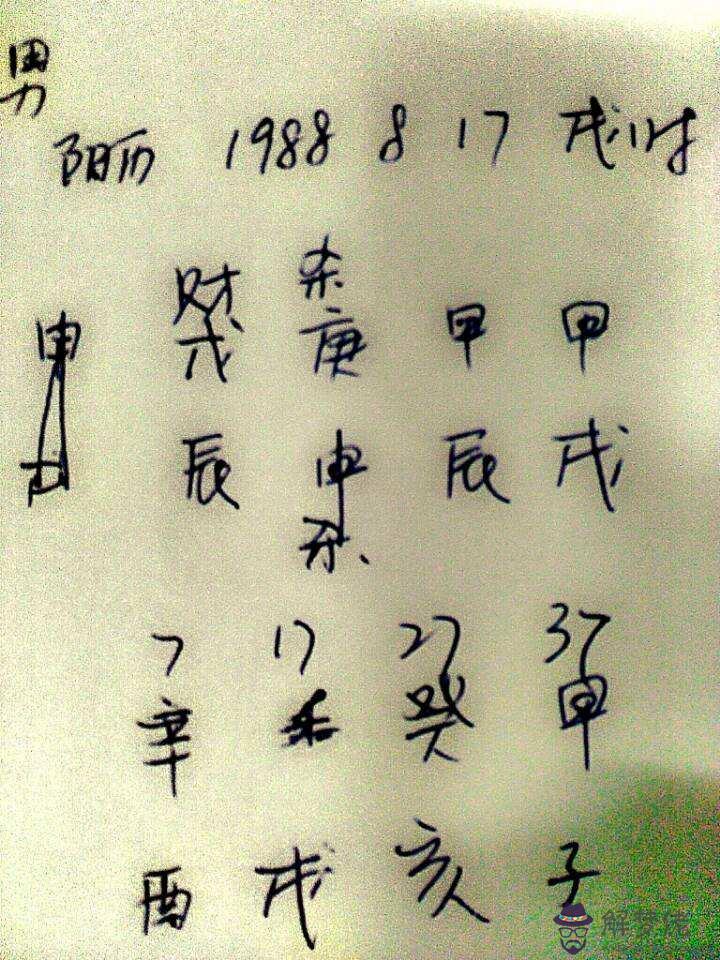 男
阳历 1988 8 17 戌时
财 杀
申 戊 庚 甲 甲
辰 申 辰 戌
杀
7 17 27 37
辛 癸 甲
酉 戌 亥 子
解梦佬